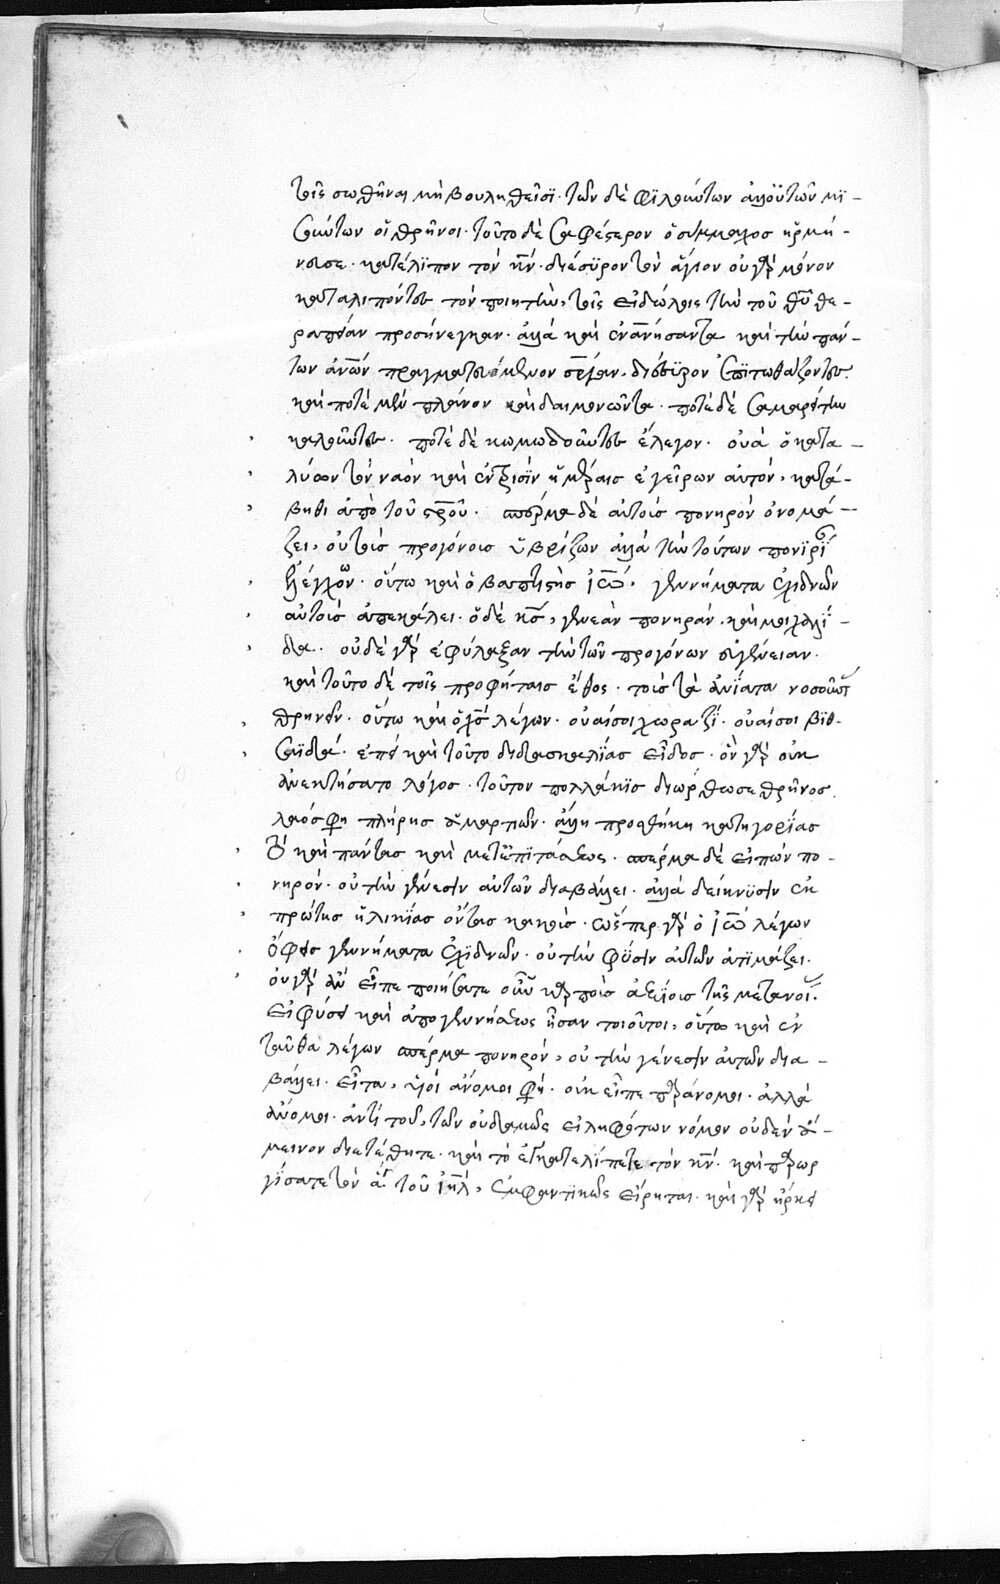 τοῖς σωθῆναι μὴ βουληθεῖσϊ· τῶν δὲ φϊλούντων ἀλλ' οὐ τῶν μϊ-
σούντων οἱ θρῆνοι· τοῦτο δὲ σαφέστερον ὁ σύμμαχος ἡρμή-
νευσε· κατέλϊπον τὸν κ̅ν̅· διέσϋρον τὸν ἅγιον οὐ γὰρ μόνον
καταλιπόντες τὸν ποιητὴν, τοῖς εἰδώλοις τὴν τοῦ θ̅υ̅ θε-
ραπείαν προσήνεγκαν· ἀλλὰ καὶ ἐνανθρωπήσαντα καὶ τὴν πάν-
των ἀν̅ω̅ν πραγματευόμενον σ̅ρ̅ίαν, διέσυρον ἐπϊτωθάζοντες·
καὶ ποτὲ μὲν πλάνον καὶ δαιμονῶντα· ποτὲ δὲ σαμαρείτην
καλοῦντες· ποτὲ δὲ κωμωδοῦντες ἔλεγον· οὐὰ ὁ κατα-
λύων τὸν ναὸν καὶ ἐν τρισὶν ἡμέραις ἐγεῖρων αὐτὸν, κατά-
βηθι ἀπὸ τοῦ σ̅ρ̅οῦ· σπέρμα δὲ αὐτοὺς πονηρὸν ὀνομά-
ζει, οὐ τοὺς προγόνους ὑβρίζων ἀλλὰ τὴν τούτων πονηρί
ἐλέγχων· οὕτω καὶ ὁ βαπτιστὴς ἰω̅, γεννήματα ἐχιδνῶν
αὐτοὺς ἀπεκάλει· ὁ δὲ κ̅ς̅, γενεὰν πονηρὰν· καὶ μοιχαλί-
δα· οὐδὲ γὰρ ἐφύλαξαν τὴν τῶν προγόνων εὐγένειαν·
καὶ τοῦτο δὲ τοῖς προφήταις ἔθος· τοὺς τὰ ἀνίατα νοσοῦντ
θρηνεῖν· οὕτω καὶ ὁ χ̅ς̅ λέγων· οὐαί σοι χωραζΐ· οὐαί σοι βϊθ-
σαϊδά· ἐπεὶ καὶ τοῦτο διδασκαλίας εἶδος· ὃν γὰρ οὐκ
ἀνεκτήσατο λόγος· τοῦτον πολλάκϊς διωρθωσε θρῆνος.
λαὸς φη πλήρης ἁμαρτιῶν· ἄλλη προσθήκη κατηγορίας
ὅτι καὶ πάντας καὶ μετ' ἐπϊτάσεως· σπέρμα δὲ εἰπὼν πο-
νηρὸν· οὐ τὴν γένεσιν αὐτῶν διαβάλλει· ἀλλὰ δείκνϋσιν ἐκ
πρώτης ἡλικίας ὄντας κακοὺς· ὥσπερ γὰρ ὁ ἰω̅ λέγων
ὄφεις γεννήματα ἐχϊδνῶν· οὐ τὴν φύσιν αὐτῶν ἀτϊμάζει·
οὐ γὰρ ἂν εἶπε ποιήσατε οὖν καρποὺς ἀξίους τῆς μετανοί·
εἰ φύσει καὶ ἀπὸ γεννήσεως ἦσαν τοιοῦτοι, οὕτω καὶ ἐν
ταῦθα λέγων σπέρμα πονηρὸν, οὐ τὴν γένεσιν αὐτῶν δια-
βάλλει· εἶτα, ὑϊοὶ ἄνομοι φη· οὐκ εἶπε παράνομοι· ἀλλὰ
ἄνομοι· ἀντὶ τοῦ, τῶν οὐδαμῶς εἰληφότων νόμον οὐδὲν ἄ-
μεινον διετέθητε· καὶ τὸ ἐγκατελίπετε τὸν κ̅ν̅· καὶ παρωρ
γίσατε τὸν ἅγ τοῦ ἰη̅λ̅, ἐμφαντϊκῶς εἴρηται· καὶ γὰρ ἤρκει